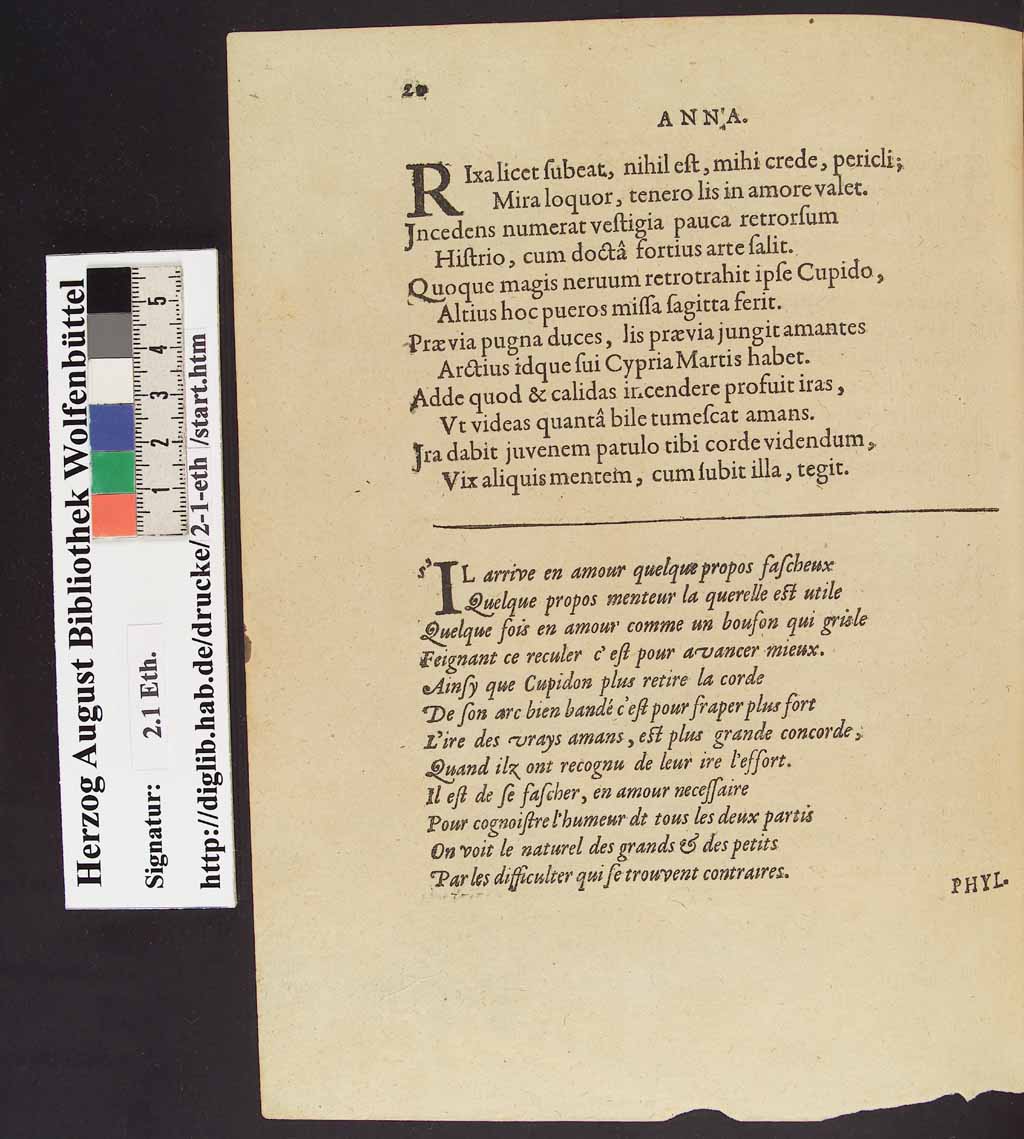 Herzog August Bibliothek Wolfenbüttel
Signatur: 2.1 Eth.
http://diglib.hab.de/drucke/2-1-eth/start.htm
1 2 3 4 5
20
ANNA.
RIxa licet ſubeat, nihil eſt, mihi crede, pericli;
Mira loquor, tenero lis in amore valet.
Jncedens numerat veſtigia pauca retrorſum
Hiſtrio, cum doctâ fortius arte ſalit.
Quoque magis neruum retrotrahit ipſe Cupido,
Altius hoc pueros miſſa ſagitta ferit.
Prævia pugna duces, lis prævia jungit amantes
Arctius idque ſui Cypria Martis habet.
Adde quod & calidas incendere profuit iras,
Vt videas quantâ bile tumeſcat amans.
Jra dabit juvenem patulo tibi corde videndum,
Vix aliquis mentem, cum ſubit illa, tegit.
S'IL arrive en amour quelque propos faſcheux
Quelque propos menteur la querelle eſt utile
Quelque fois en amour comme un boufon qui grisle
Feignant ce reculer c'eſt pour avancer mieux.
Ainſy que Cupidon plus retire la corde
De ſon arc bien bandé c'eſt pour fraper plus fort
L'ire des vrays amans, eſt plus grande concorde,
Quand ilz ont recognu de leur ire l'effort.
Il eſt de ſe faſcher, en amour neceſſaire
Pour cognoiſtre l'humeur dt tous les deux partis
On voit le naturel des grands & des petits
Par les difficulter qui ſe trouvent contraires.
PHYL.